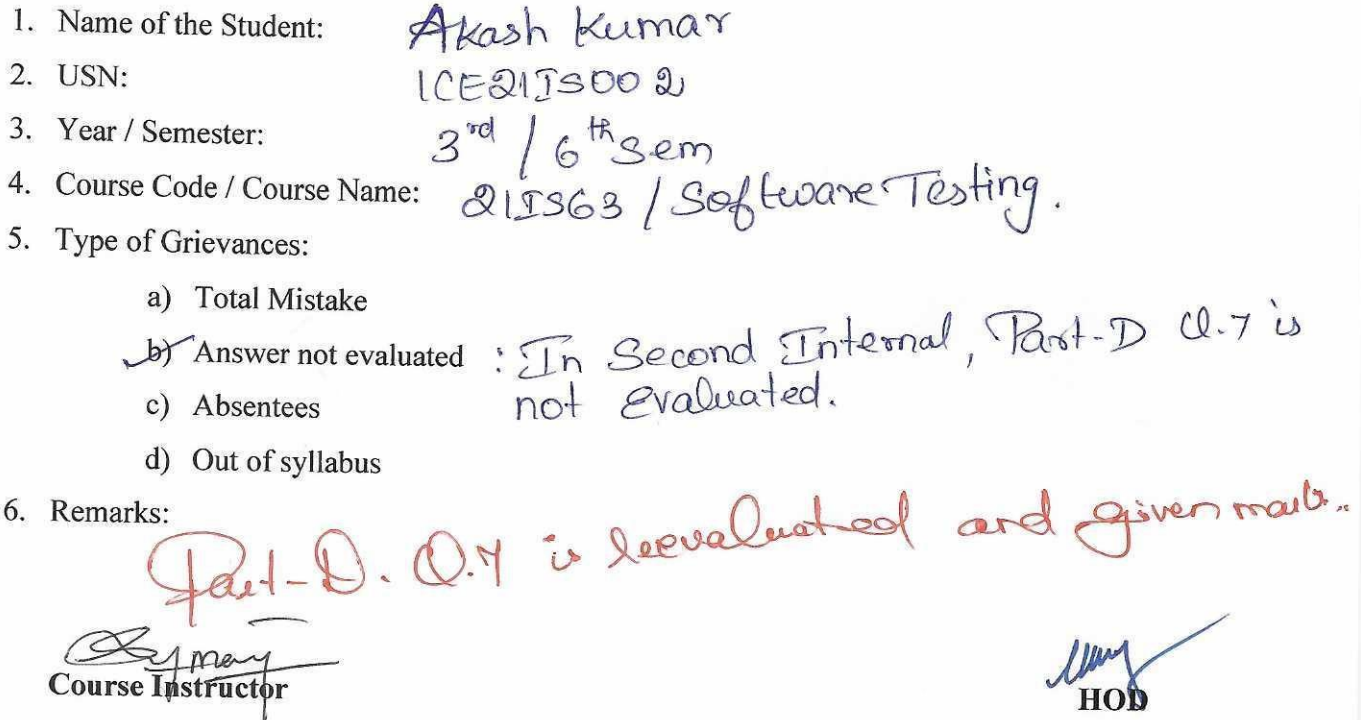 1. Name of the Student: Akash Kumar
2. USN: 1CE21IS002
3. Year / Semester: 3rd / 6th Sem
4. Course Code / Course Name: 21IS63 / Software Testing.
5. Type of Grievances:
a) Total Mistake
b) Answer not evaluated : In Second Internal, Part-D Q.7 is
not evaluated.
c) Absentees
d) Out of syllabus
6. Remarks:
Part-D. Q.7 is reevaluated and given marks.
Course Instructor
HOD